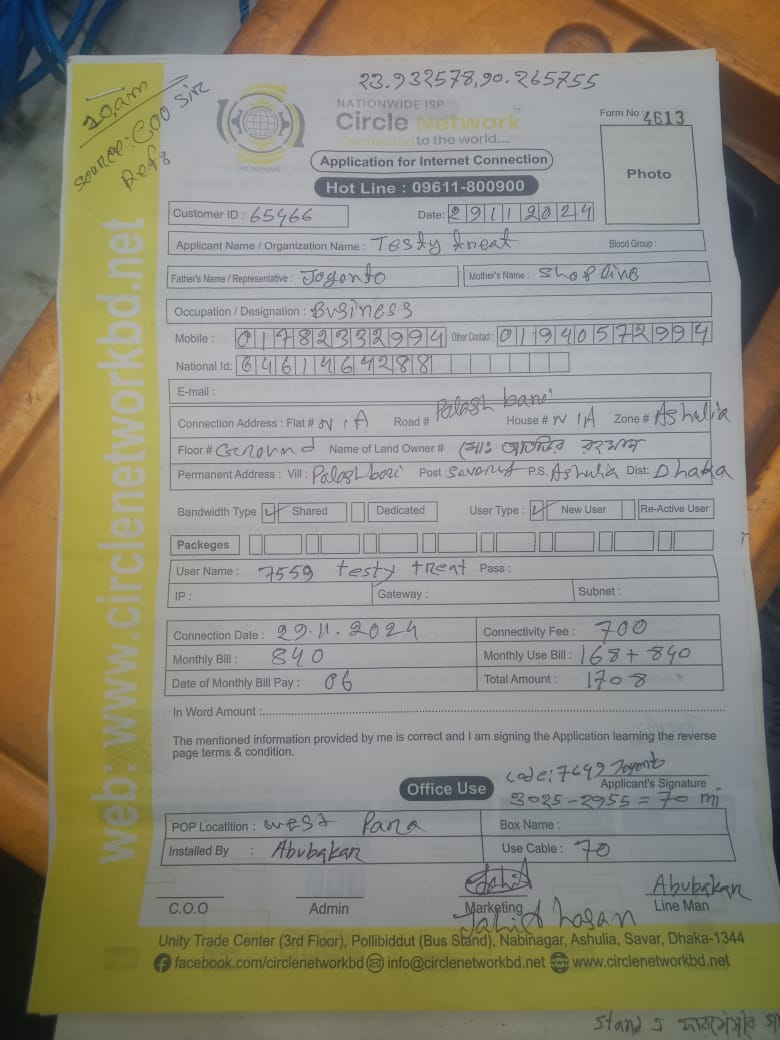 23.932578,90.265755
10am
Source: COO Sir
Ref:
NATIONWIDE ISP
Circle Network
Connected to the world.....
Form No : 4613
Application for Internet Connection
Photo
Hot Line : 09611-800900
Customer ID : 65466
Date: 29112024
Applicant Name / Organization Name : Testy treat
Blood Group :
Father's Name / Representative : Joyonto
Mother's Name : Shop line
Occupation / Designation : Business
Mobile : 01782332994 Other Contact : 01940572994
National Id: 6461464288
E-mail :
Connection Address : Flat # N/A Road # Palash bari House # N/A Zone # Ashulia
Floor # Ground Name of Land Owner # মোঃ রহমান
Permanent Address : Vill : Palashbari Post : Savar P.S. Ashulia Dist: Dhaka
Bandwidth Type Shared Dedicated User Type : New User Re-Active User
Packeges
User Name : 7559 testy treat Pass :
IP : Gateway : Subnet :
Connection Date : 29.11.2024 Connectivity Fee : 700
Monthly Bill : 840 Monthly Use Bill : 168 + 840
Date of Monthly Bill Pay : 06 Total Amount : 1708
In Word Amount :
The mentioned information provided by me is correct and I am signing the Application learning the reverse
page terms & condition.
code: 7692 Joyonto
Office Use
Applicant's Signature
3025 - 2955 = 70 mi
POP Locatition : West Para Box Name :
Installed By : Abubakar Use Cable : 70
C.O.O Admin Marketing Line Man
Abubakar
Jahid hasan
Unity Trade Center (3rd Floor), Pollibiddut (Bus Stand), Nabinagar, Ashulia, Savar, Dhaka-1344
facebook.com/circlenetworkbd info@circlenetworkbd.net www.circlenetworkbd.net
web: www.circlenetworkbd.net
stand এ